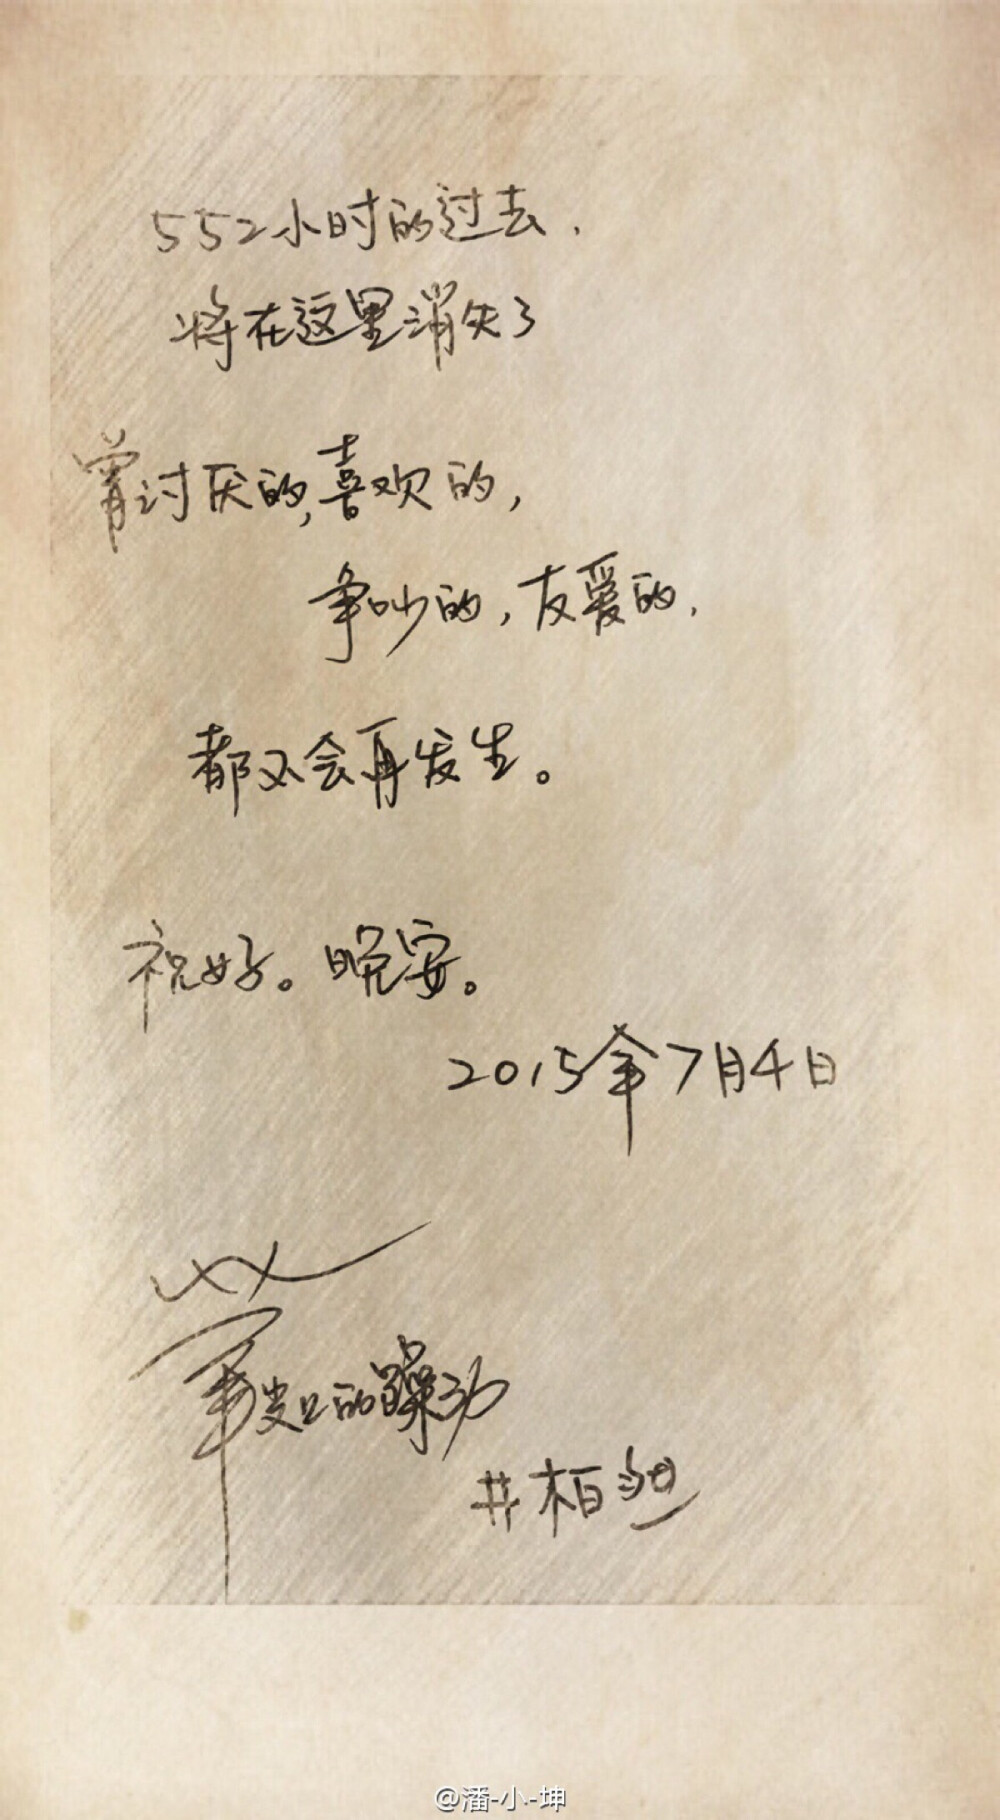 552小时的过去,
将在这里消失了
曾讨厌的,喜欢的,
争吵的,友爱的,
都不会再发生。
祝好。晚安。
2015年7月4日
的躁动
井柏然
@潘-小-坤